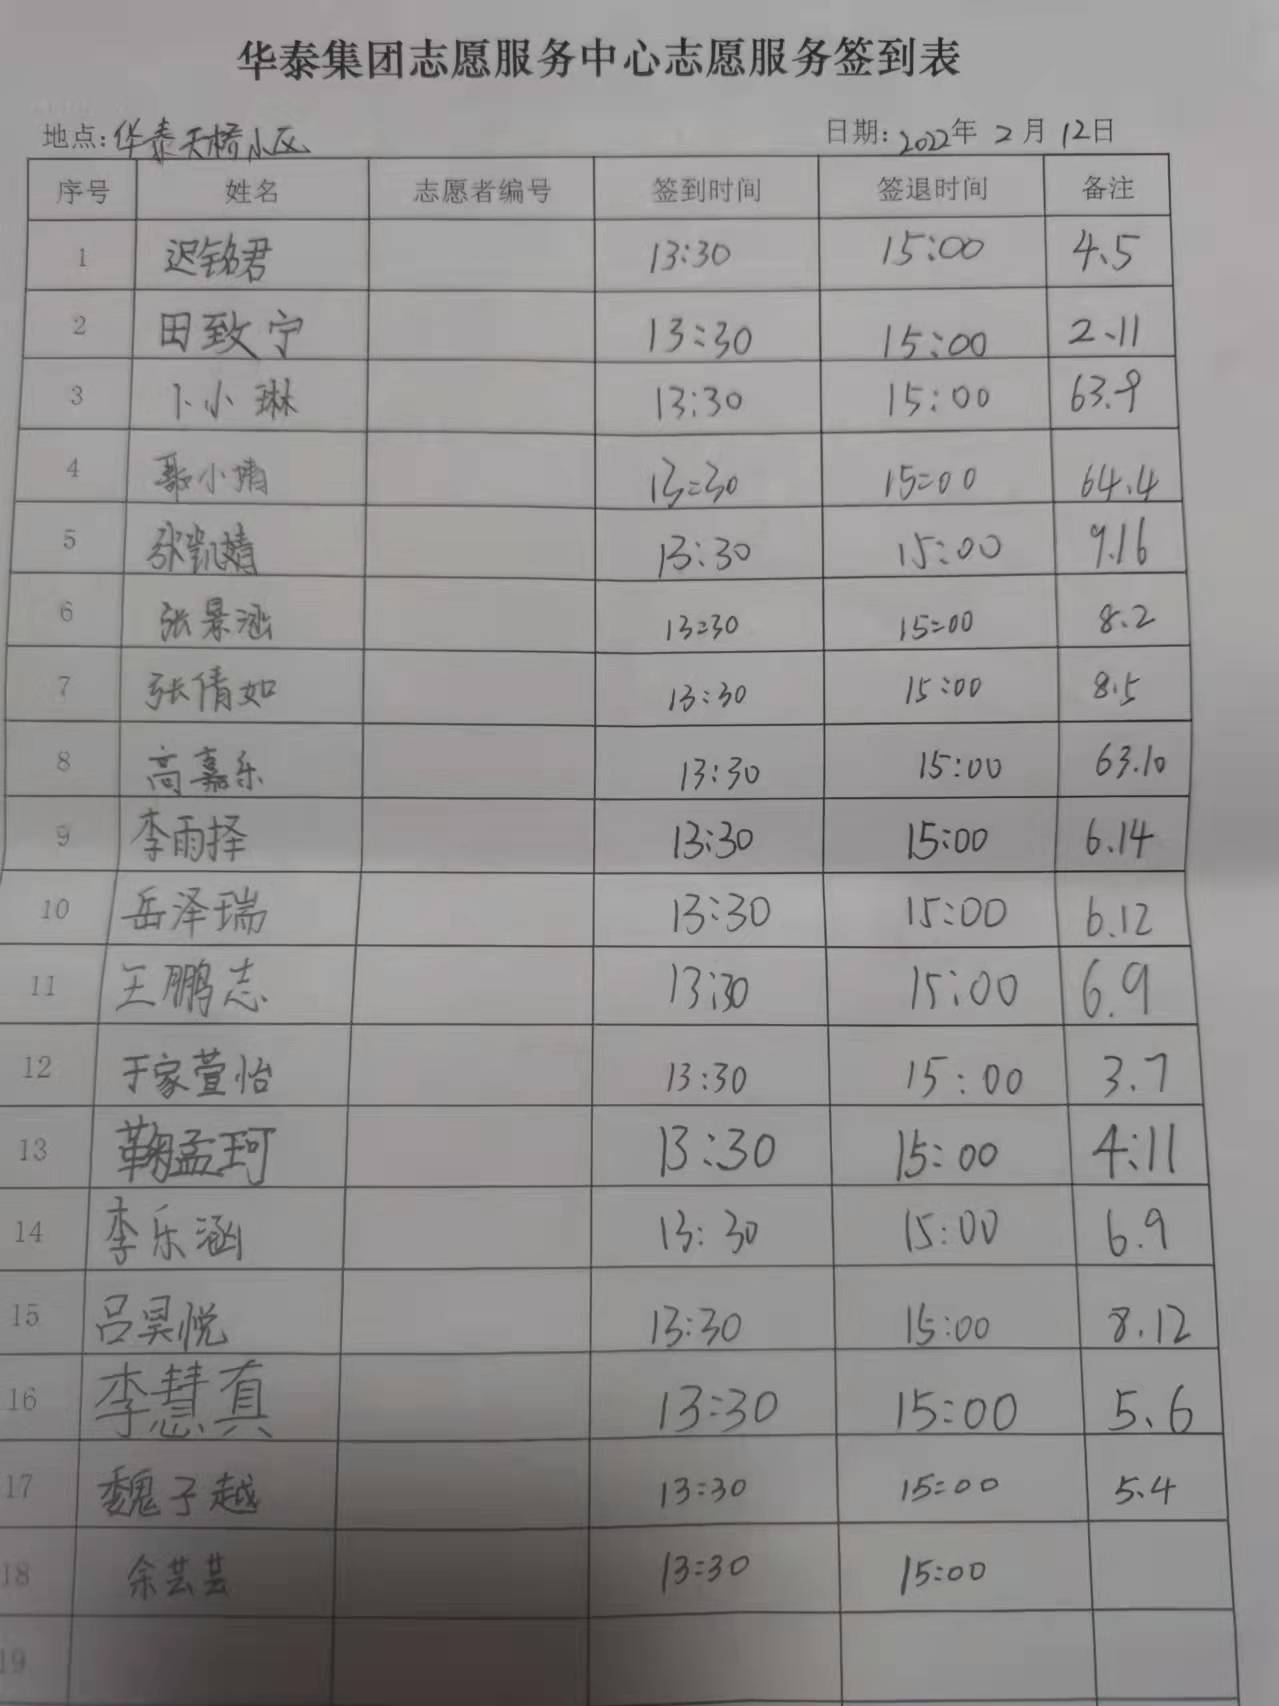 华泰集团志愿服务中心志愿服务签到表
地点:华泰天桥小区 日期:2022年 2月 12日
序号 姓名 志愿者编号 签到时间 签退时间 备注
1 迟铭君 13:30 15:00 4、5
2 田致宁 13:30 15:00 2、11
3 卜小琳 13:30 15:00 63.9
4 小 13:30 15:00 64.4
5 张凯婧 13:30 15:00 9.16
6 张景涵 13:30 15:00 8.2
7 张倩如 13:30 15:00 8.5
8 高嘉乐 13:30 15:00 63.10
9 李雨择 13:30 15:00 6.14
10 岳泽瑞 13:30 15:00 6.12
11 王鹏志 13:30 15:00 6.9
12 于家萱怡 13:30 15:00 3.7
13 鞠孟珂 13:30 15:00 4:11
14 李乐涵 13:30 15:00 6.9
15 吕昊悦 13:30 15:00 8.12
16 李慧真 13:30 15:00 5、6
17 魏子越 13:30 15:00 5.4
18 余芸芸 13:30 15:00
19